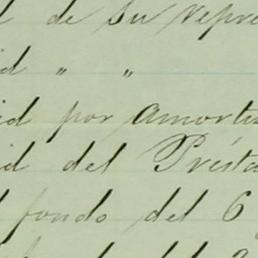 l de su repre
id " "
id por amorti
id del Présta
l fondo del 6